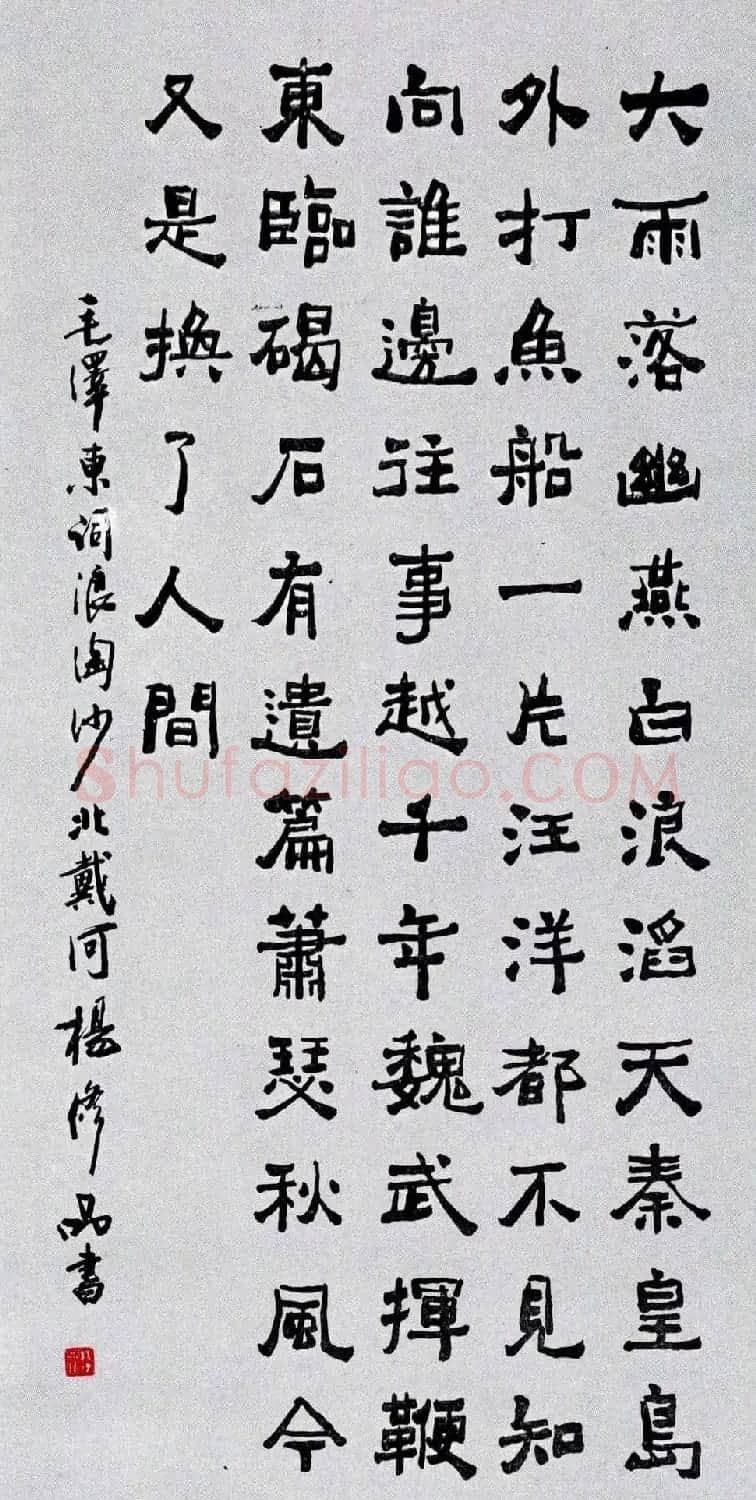 大雨落幽燕白浪滔天秦皇島
外打魚船一片汪洋都不見知
向誰邊往事越千年魏武揮鞭
東臨碣石有遺篇蕭瑟秋風今
又是換了人間
毛澤東詞浪淘沙北戴河楊修品書
Shufaziliao.COM